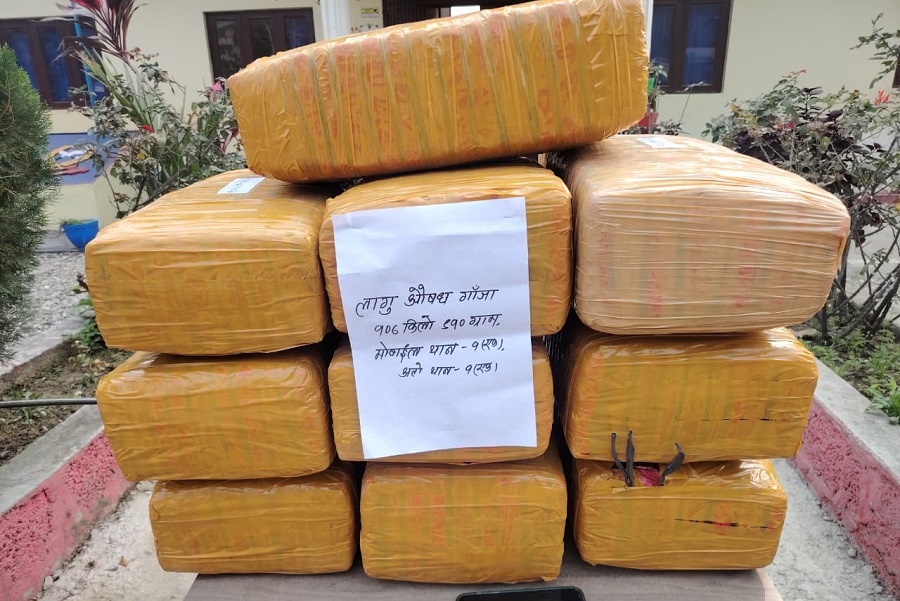 लागु औषध गाँजा
१०८ किलो ८१० ग्राम,
मोवाईल थान - १(एक),
अटो थान - १(एक)